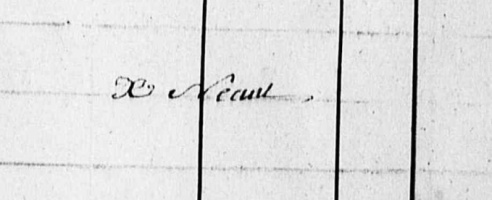 X Néant